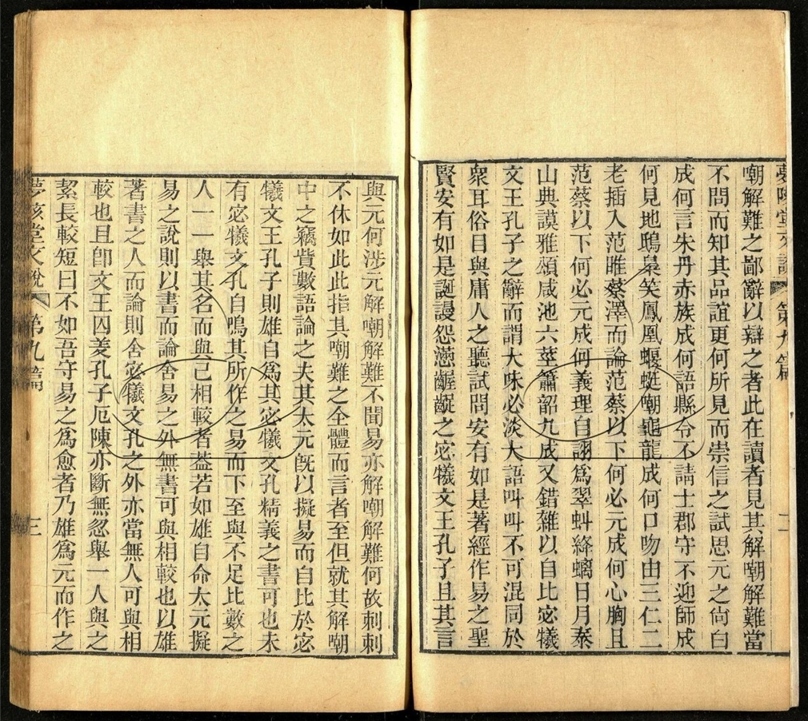 嘲解難之鄙辭以辯之者此在讀者見其解嘲解難當
不問而知其品誼更何所見而崇信之試思元之尙白
成何言朱丹赤族成何語縣令不請士郡守不迎師成
何見地鴟梟笑鳳凰蝘蜓嘲龜龍成何口吻由三仁二
老插入范雎蔡澤而論范蔡以下何必元成何心胸且
范蔡以下何必元成何義理自詡爲翠虯絳螭日月泰
山典謨雅頌咸池六莖簫韶九成又錯雜以自比宓犧
文王孔子之辭而謂大味必淡大語叫叫不可混同於
衆耳俗目與庸人之聽試問安有如是著經作易之聖
賢安有如是誕謾怨懟齷齪之宓犧文王孔子且其言
第九篇
二
與元何涉元解嘲解難不聞易亦解嘲解難何故刺刺
不休如此此指其嘲難之全體而言者至但就其解嘲
中之竊貲數語論之夫其太元旣以擬易而自比於宓
犧文王孔子則雄自爲其宓犧文孔精義之書可也未
有宓犧文孔自鳴其所作之易而下至與不足比數之
人一一舉其名而與己相較者葢若如雄自命太元擬
易之說則以書而論舍易之外無書可與相較也以雄
著書之人而論則舍宓犧文孔之外亦當無人可與相
較也且卽文王囚羑孔子厄陳亦斷無忽舉一人與之
絜長較短曰不如吾守易之爲愈者乃雄爲元而作之
夢陔堂文說
第九篇
三